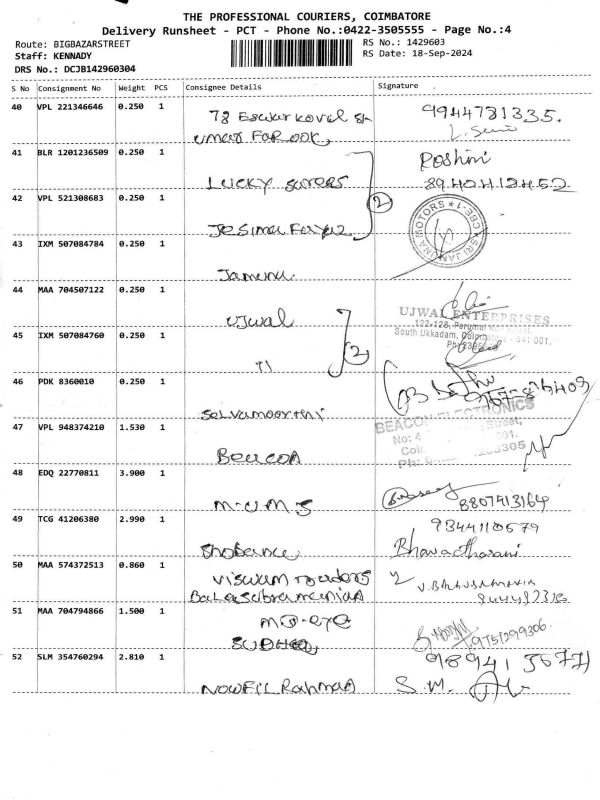 THE PROFESSIONAL COURIERS, COIMBATORE
Delivery Runsheet - PCT - Phone No.:0422-3505555 - Page No.:4
Route: BIGBAZARSTREET
RS No.: 1429603
Staff: KENNADY
RS Date: 18-Sep-2024
DRS No.: DCJB142960304
S No Consignment No Weight PCS Consignee Details Signature
40 VPL 221346646 0.250 1
78
9944781335.
umar FAROOK
41 BLR 1201236509 0.250 1
Roshini
LUCKY
8940412452
42 VPL 521308683 0.250 1
2
SRI JAMUNA MOTORS * CBE-1 *
Jesima Fayaz
43 IXM 507084784 0.250 1
Jamuna
44 MAA 704507122 0.250 1
UJWAL
UJWAL ENTERPRISES
122-128, Perumal
South Ukkadam, Coimbatore - 641 001.
45 IXM 507084760 0.250 1
2
46 PDK 8360010 0.250 1
Selvamoorthi
47 VPL 948374210 1.530 1
BEACON ELECTRONICS
Beacon
48 EDQ 22770811 3.900 1
M-UMS
8807413164
49 TCG 41206380 2.990 1
9344110679
Shobana
Bhavadharani
50 MAA 574372513 0.860 1
Viswam Traders
Balasubramanian
51 MAA 704794866 1.500 1
9751299306.
SUDHA
52 SLM 354760294 2.810 1
NOWFIL Rahman
S.M.